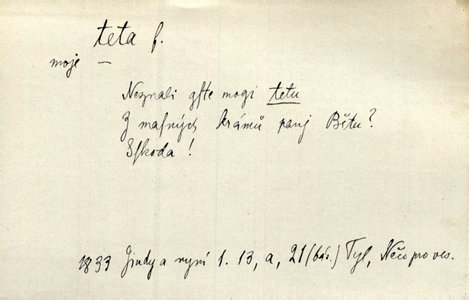 teta f.
moje —
Neznali gste mogi tetu
Z masných krámů panj Bětu?
Sskoda!
1833 Gindy a nynj 1. 13, a, 21 (bás.) Tyl, Něco pro ves.